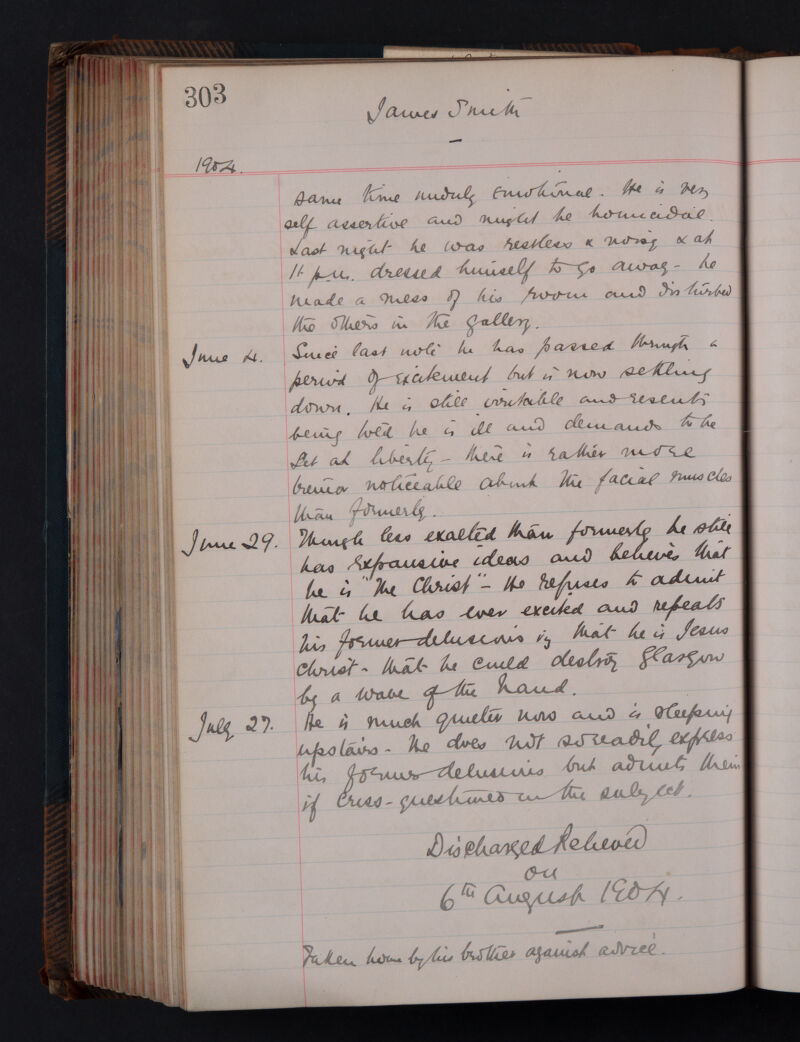 303
James Smith
1904.
same time unduly emotional. He is very
self assertive and might be homicidal.
Last night he was restless & noisy & at
11 p.m. dressed himself to go away - he
made a mess of his room and disturbed
the others in the gallery.
June 4. Since last note he has passed through a
period of excitement but is now settling
down. He is still irritable and resents
being told he is ill and demands to be
set at liberty - there is rather more
tremor noticeable about the facial muscles
than formerly.
June 29. Though less exalted than formerly he still
has expansive ideas and believes that
he is "The Christ" - He refuses to admit
that he has ever excited and repeats
his former delusions viz that he is Jesus
Christ - that he could destroy Glasgow
by a wave of the hand.
July 27. He is much quieter now and is sleeping
upstairs - He does not so readily express
his former delusions but admits them
if cross-questioned on the subject.
Discharged Relieved
on
6th August 1904.
Taken home by his brother against advice.